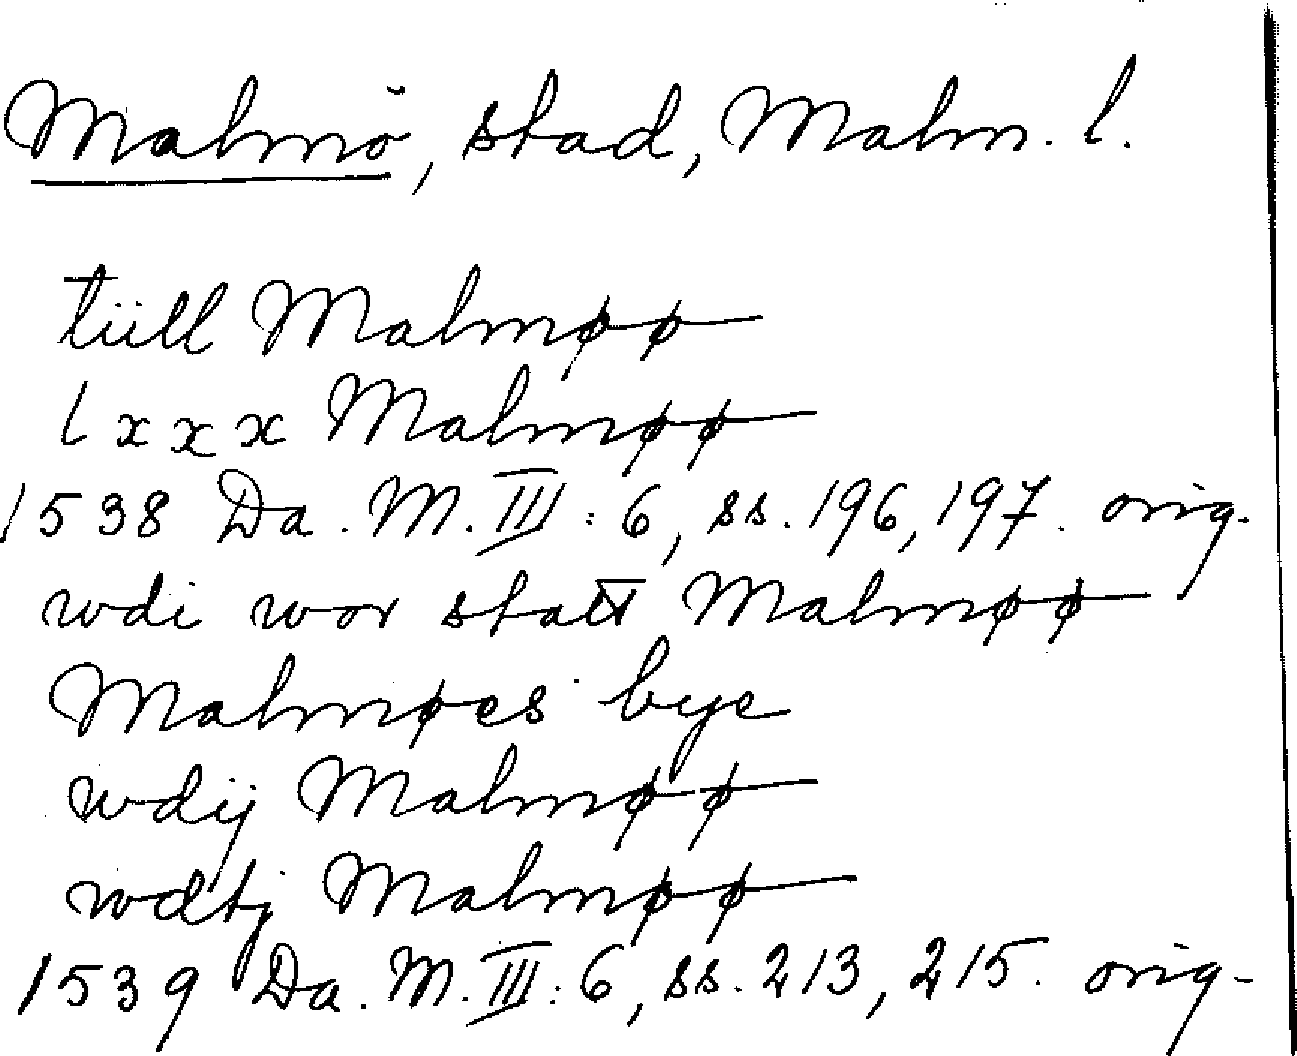 Malmö, stad, Malm. l.
tiill Malmøø
lxxx Malmøø
1538 Da. M. III: 6, ss. 196, 197. orig.
wdi wor statt Malmøø
Malmøes bye
wdij Malmøø
wdtj Malmøø
1539 Da. M. III: 6, ss. 213, 215. orig-